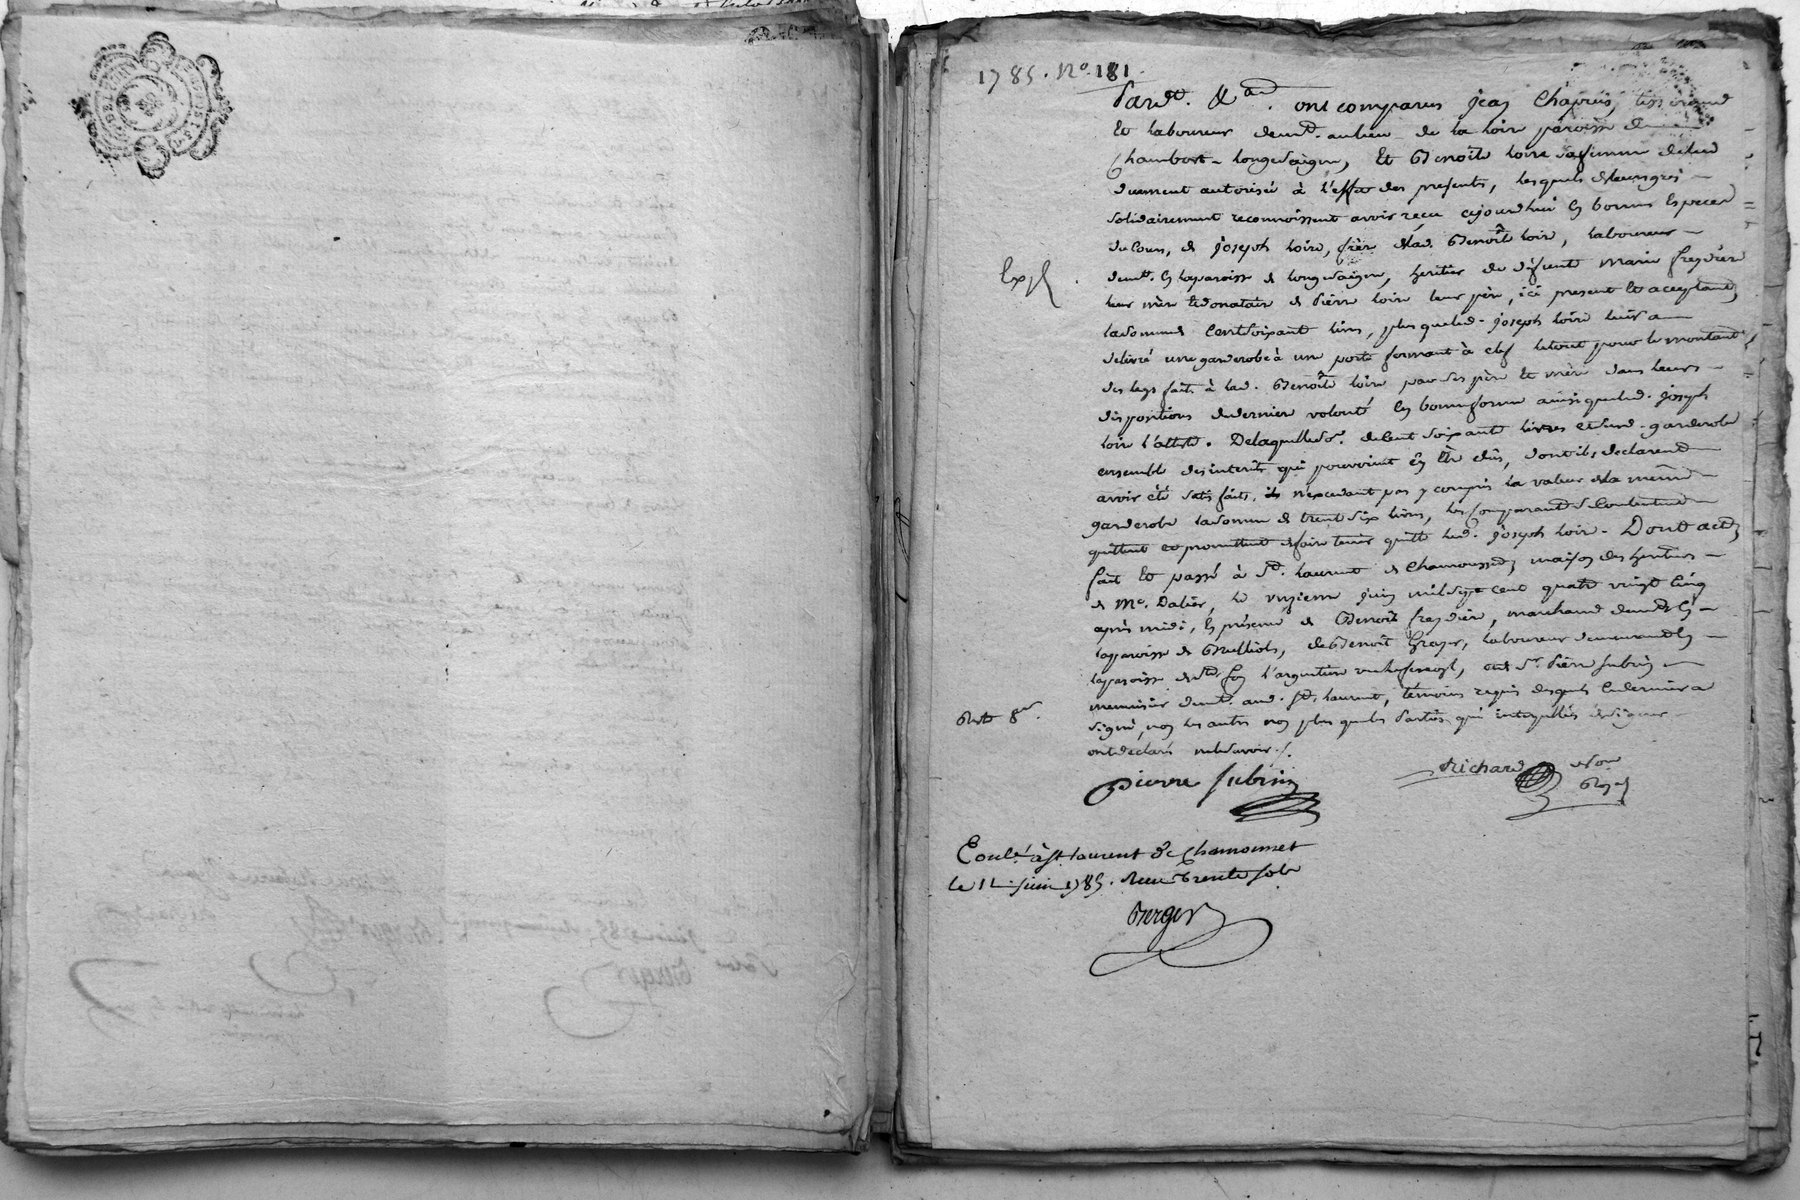 1785. No. 181.
Pardt. &a. ont comparus jean Chapuis, tisserand
et laboureur demt. au lieu de la loire paroisse de
Chambost-longesaigne, et Benoîte loire sa femme de lui
duement autorisée à l'effet des presentes, lesquels de leurs grés
solidairement reconnoissent avoir recu cejourdhui en bonnes especes
du cours, de joseph loire, frère de lad. Benoîte loire, laboureur
demt. en la paroisse de longesaigne, heritier de défunte marie freydière
Exp
leur mère et donataire de Pierre loire leur père, ici present et acceptant,
la somme de Cent soixante livres, plus que led. joseph loire leur a
delivré une garderobe à une porte fermant à clef le tout pour le montant
des legs faits à lad. Benoîte loire par ses père et mère dans leurs
dispositions de dernière volonté en bonne forme ainsi que led. joseph
loire l'atteste. De laquelle so͞e. de Cent soixante livres et sud. garderobe
ensemble des interêts qui pouvoient en être dûs, dont ils declarent
avoir été satisfaits, ils n'excedant pas y compris la valeur de la même
garderobe la somme de trente six livres, les comparants se contentent
quittent et promettent de faire tenir quitte led. joseph loire. Dont acte,
fait et passé à St. laurent de Chamousset, maison des heritiers
de Me. Dalier, le onzieme juin mil sept cent quatre vingt cinq
après midi, en présence de Benoit freydière, marchand demt. en
la paroisse de Brulliols, de Benoit Grayer, laboureur demeurant en
la paroisse de Ste. foy l'argentiere, et de Sr. Pierre Subrin
menuisier demt. aud. St. laurent, témoins requis desquels le dernier a
Bert 8er.
signé, non les autres non plus que les parties qui interpellés de signer
ont declaré ne le savoir./.
Pierre Subrin
Richard Nore
Royal
Conlé. à St. laurent de Chamousset
le 11 juin 1785. Recu trente sols
Berger